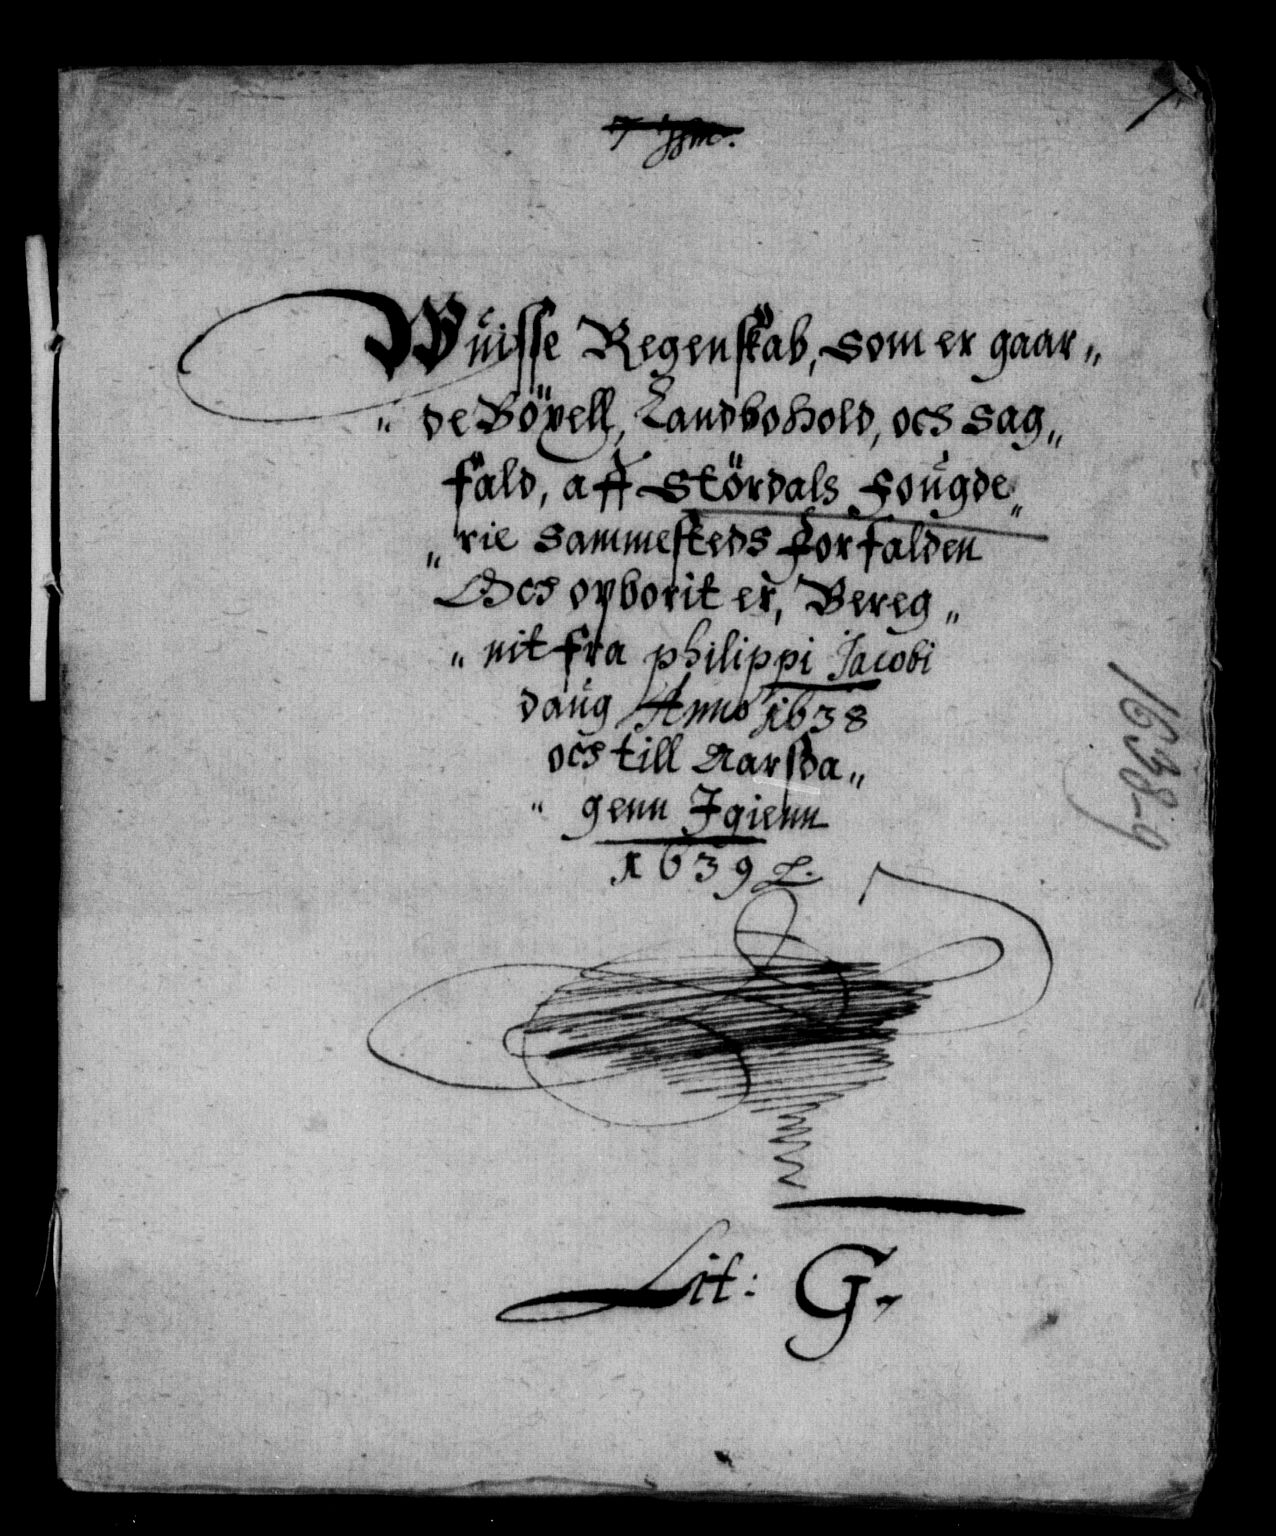 Wuisse Regenskab, som er gaar„
„ de Böxell, Landbohold, och sag„
fald, aff Stördals Fougde„
„ rie sammesteds forfalden
Och opborit er, Bereg„
„ nit fra philippi Jacobi
daug Anno 1638
och till Aarsda„
„ genn Igienn
1639
Lit: G.
1638-9